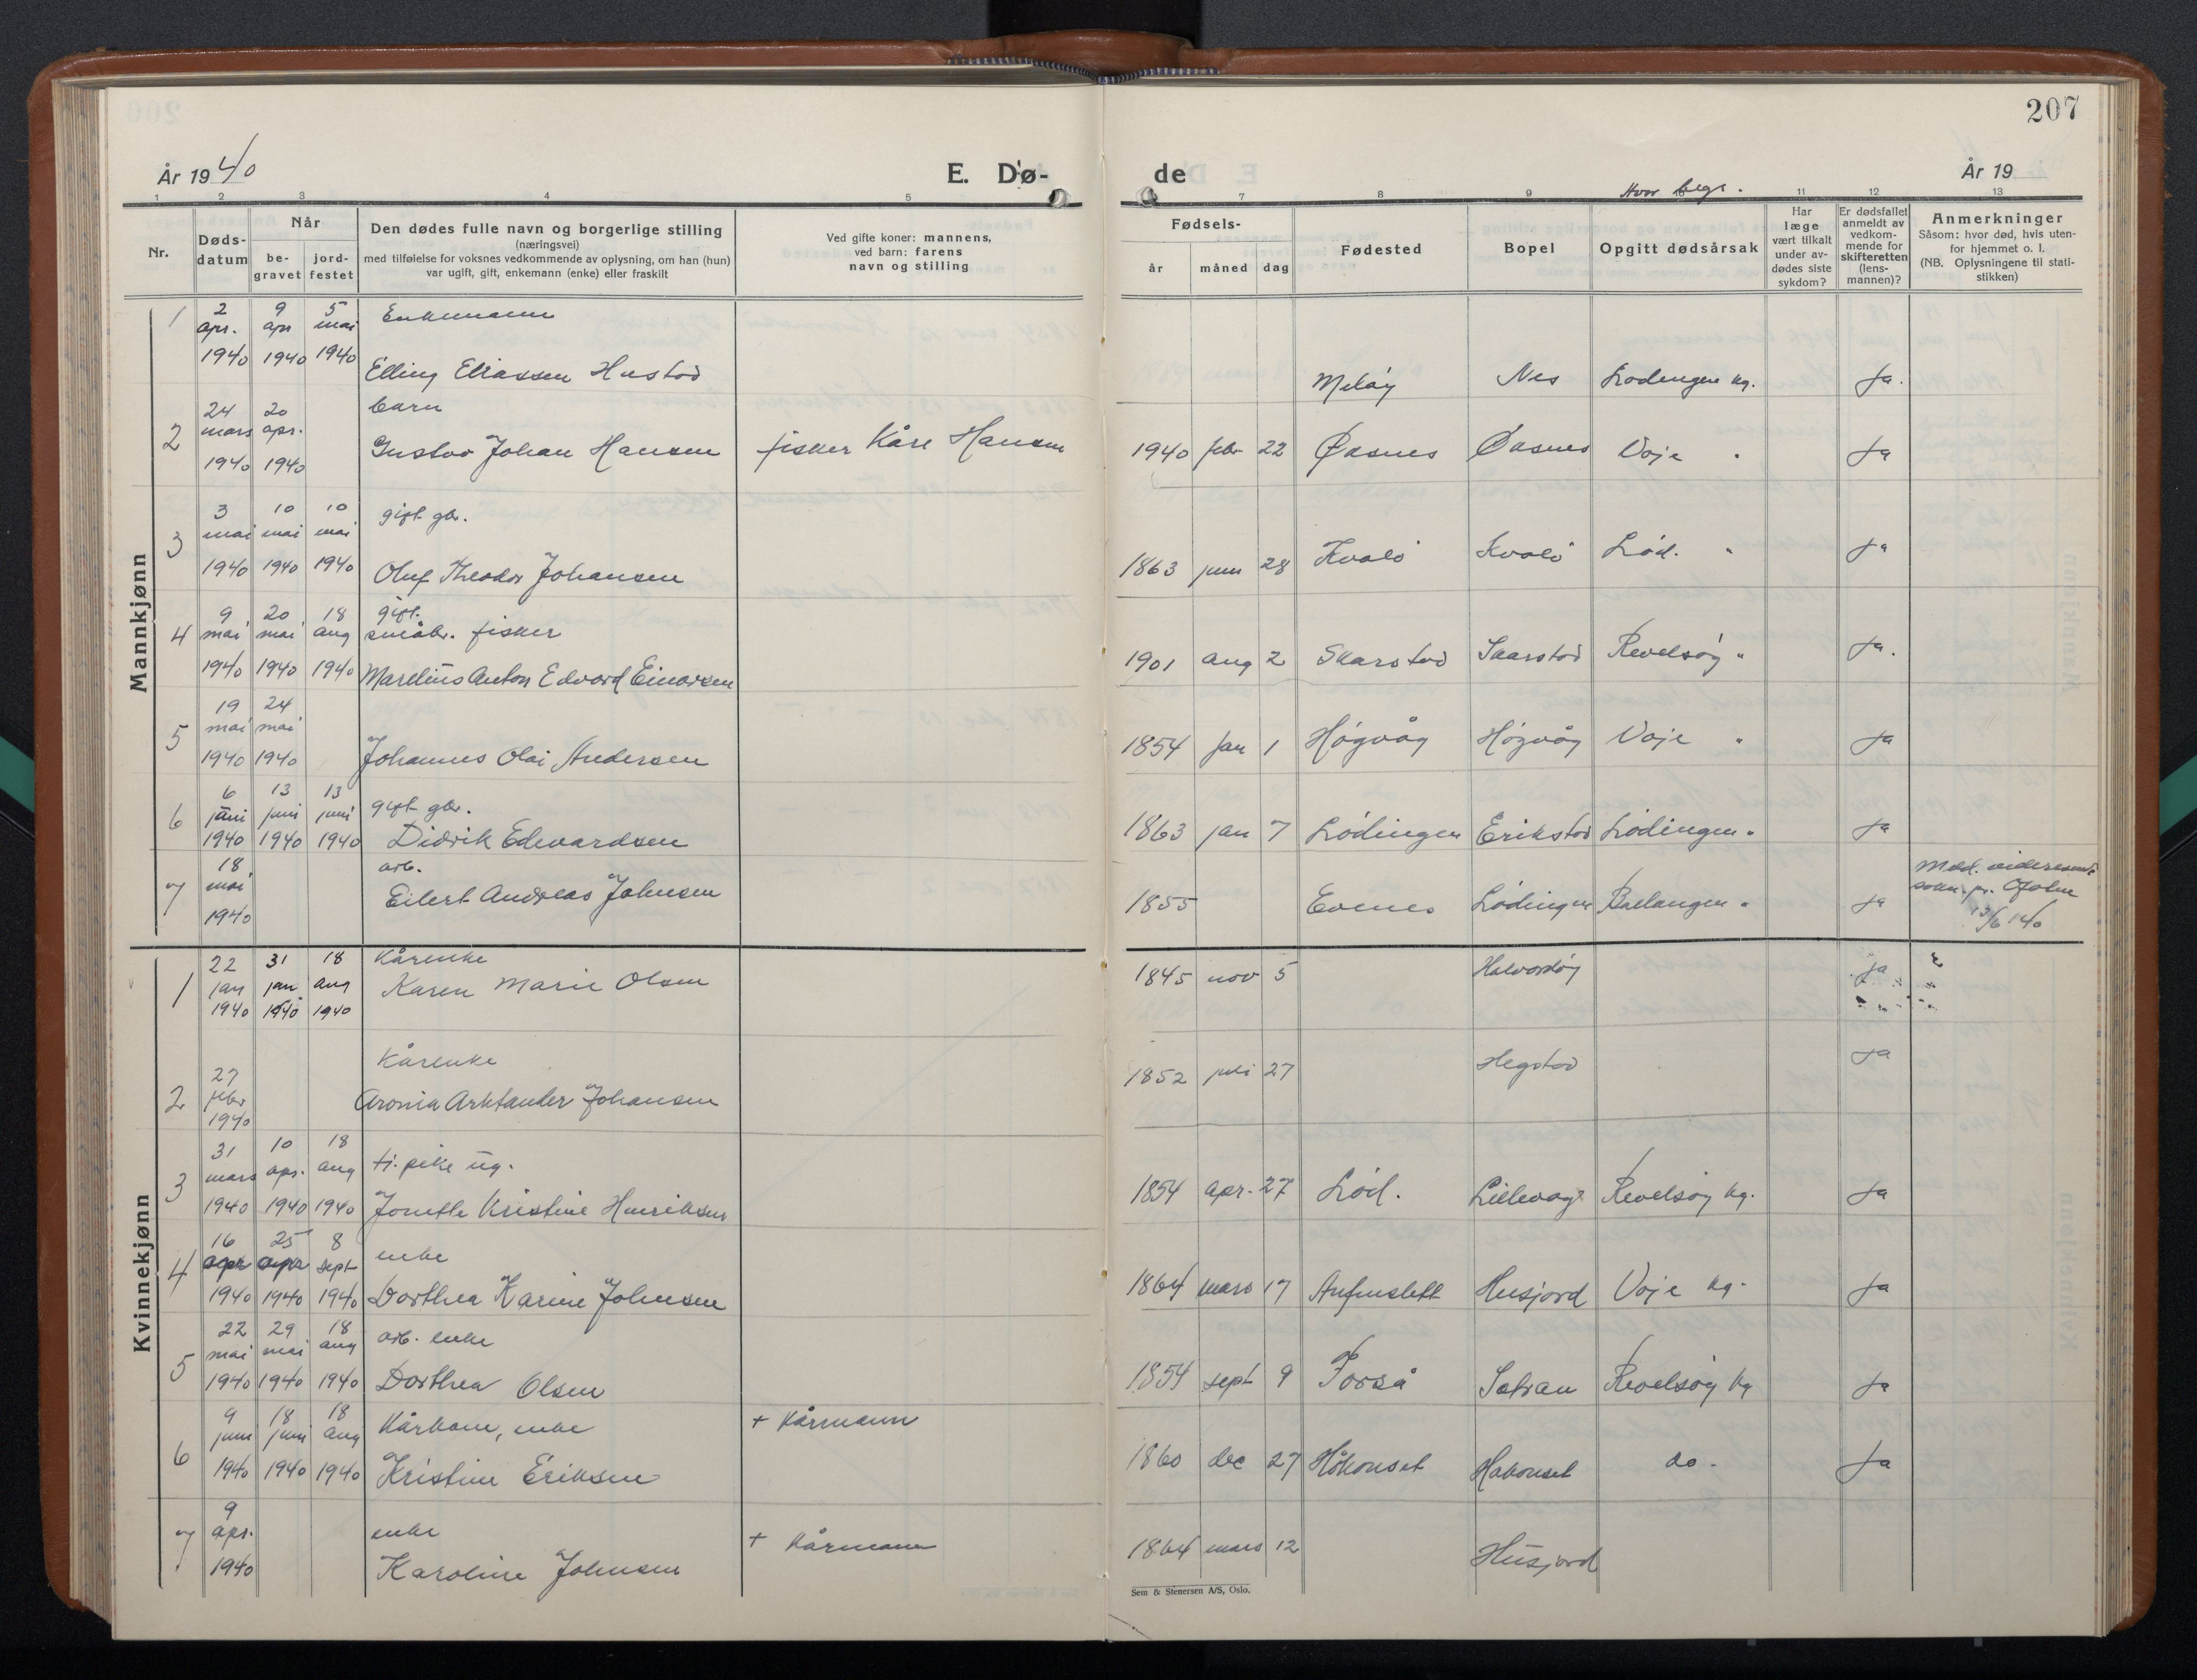 207
År 1940
E. Dø-
de
År 19
Hvor begr.
1 2 3 4 5 7 8 9 11 12 13
Nr.
Døds-
datum
Når
be-
gravet
jord-
festet
Den dødes fulle navn og borgerlige stilling
(næringsvei)
med tilføielse for voksnes vedkommende av oplysning, om han (hun)
var ugift, gift, enkemann (enke) eller fraskilt
Ved gifte koner: mannens,
ved barn: farens
navn og stilling
Fødsels-
år måned dag
Fødested
Bopel
Opgitt dødsårsak
Har
læge
vært tilkalt
under av-
dødes siste
sykdom?
Er dødsfallet
anmeldt av
vedkom-
mende for
skifteretten
(lens-
mannen)?
Anmerkninger
Såsom: hvor død, hvis uten-
for hjemmet o. l.
(NB. Oplysningene til stati-
stikken)
Mannkjønn
1 2 apr. 1940 9 apr 1940 5 mai 1940 Enkemann
Elling Eliassen Hustad Meløy Nes Lødingen kg. Ja.
2 24 mars 1940 20 apr. 1940 barn
Gustav Johan Hansen fisker Kåre Hansen 1940 febr 22 Øksnes Øksnes Voje " Ja
3 3 mai 1940 10 mai 1940 10 mai 1940 gift gbr.
Oluf Theodor Johansen 1863 juni 28 Kvalø Kvalø Lød. " Ja
4 9 mai 1940 20 mai 1940 18 aug 1940 gift.
småbr. fisker
Marelius Anton Edvard Einarsen 1901 aug 2 Skarstad Skarstad Revelsøy " Ja.
5 19 mai 1940 24 mai 1940
Johannes Olai Andersen 1854 jan 1 Høgvåg Høgvåg Voje " Ja
6 6 juni 1940 13 juni 1940 13 juni 1940 gift gbr.
Didrik Edvardsen 1863 jan 7 Lødingen Erikstad Lødingen " Ja
7 18 mai 1940 arb.
Eilert Andreas Johnsen 1855 Evenes Lødingen Ballangen " Ja
Med. videresendt
sokn.pr. Ofoten
13/6 1940
Kvinnekjønn
1 22 jan 1940 31 jan 1940 18 aug 1940 Kårenke
Karen Marie Olsen 1845 nov 5 Halvardøy ja
2 27 febr 1940 Kårenke
Aronia Arktander Johansen 1852 juli 27 Hegstad Ja
3 31 mars 1940 10 apr. 1940 18 aug 1940 tj. pike ug.
Jonette Kristine Henriksen 1854 apr. 27 Lød. Lillevåg Revelsøy kg. Ja
4 16 apr 1940 25 apr 1940 8 sept 1940 enke
Dorthea Karine Johnsen 1864 mars 17 Husjord Voje kg. Ja
5 22 mai 1940 29 mai 1940 18 aug 1940 arb. enke
Dorthea Olsen 1854 sept 9 Forså Revelsøy kg Ja
6 9 juni 1940 18 juni 1940 18 aug 1940 Kårkone, enke + Kårmann
Kristine Eriksen 1860 dec 27 Håkonset Håkonset do. Ja
7 9 apr. 1940 enke + Kårmann
Karoline Johnsen 1864 mars 12 Husjord
Sem & Stenersen A/S, Oslo.